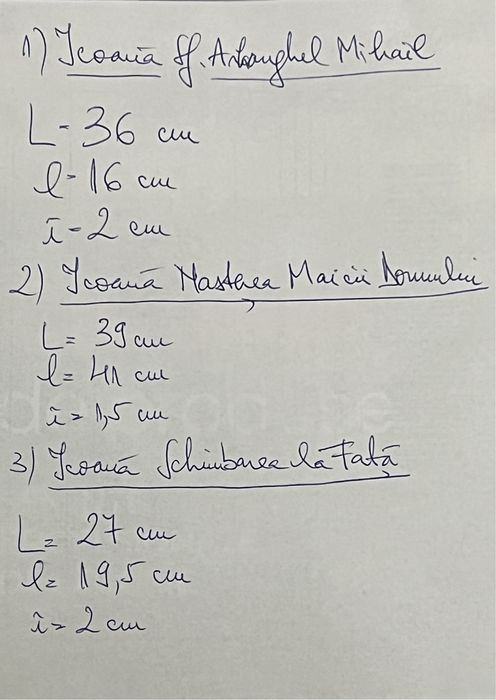 1) Icoană Sf. Arhanghel Mihail
L- 36 cm
l- 16 cm
î- 2 cm
2) Icoană Nașterea Maicii Domnului
L= 39 cm
l= 41 cm
î= 1,5 cm
3) Icoană Schimbarea la Față
L= 27 cm
l= 19,5 cm
î= 2 cm